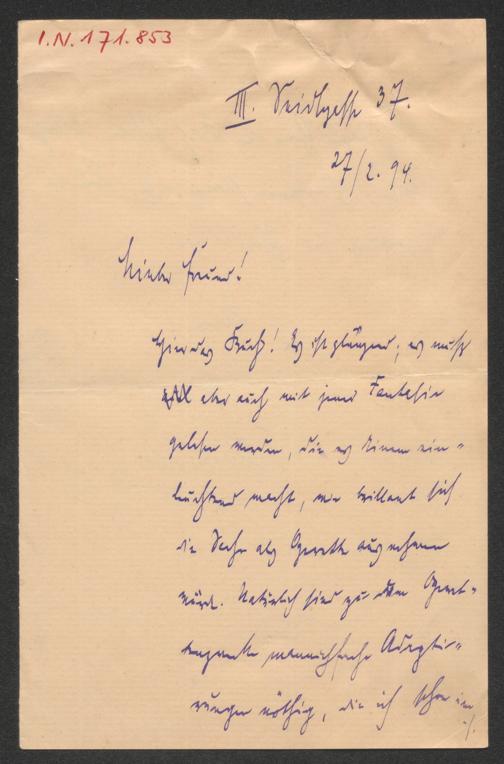 I.N. 171.853
III. Seidlgasse 37.
27/2. 94.
Lieber Freund!
Hier das Buch! Es ist glänzend; es muß
aber auch mit jener Fantasie
gelesen werden, die es Einem ein-
leuchtend macht, wie brillant sich
die Sache als Operette ausnehmen
würde. Natürlich sind zu dem Operet-
tenzwecke mannichfache Adaptir-
ungen nöthig, die ich schon im